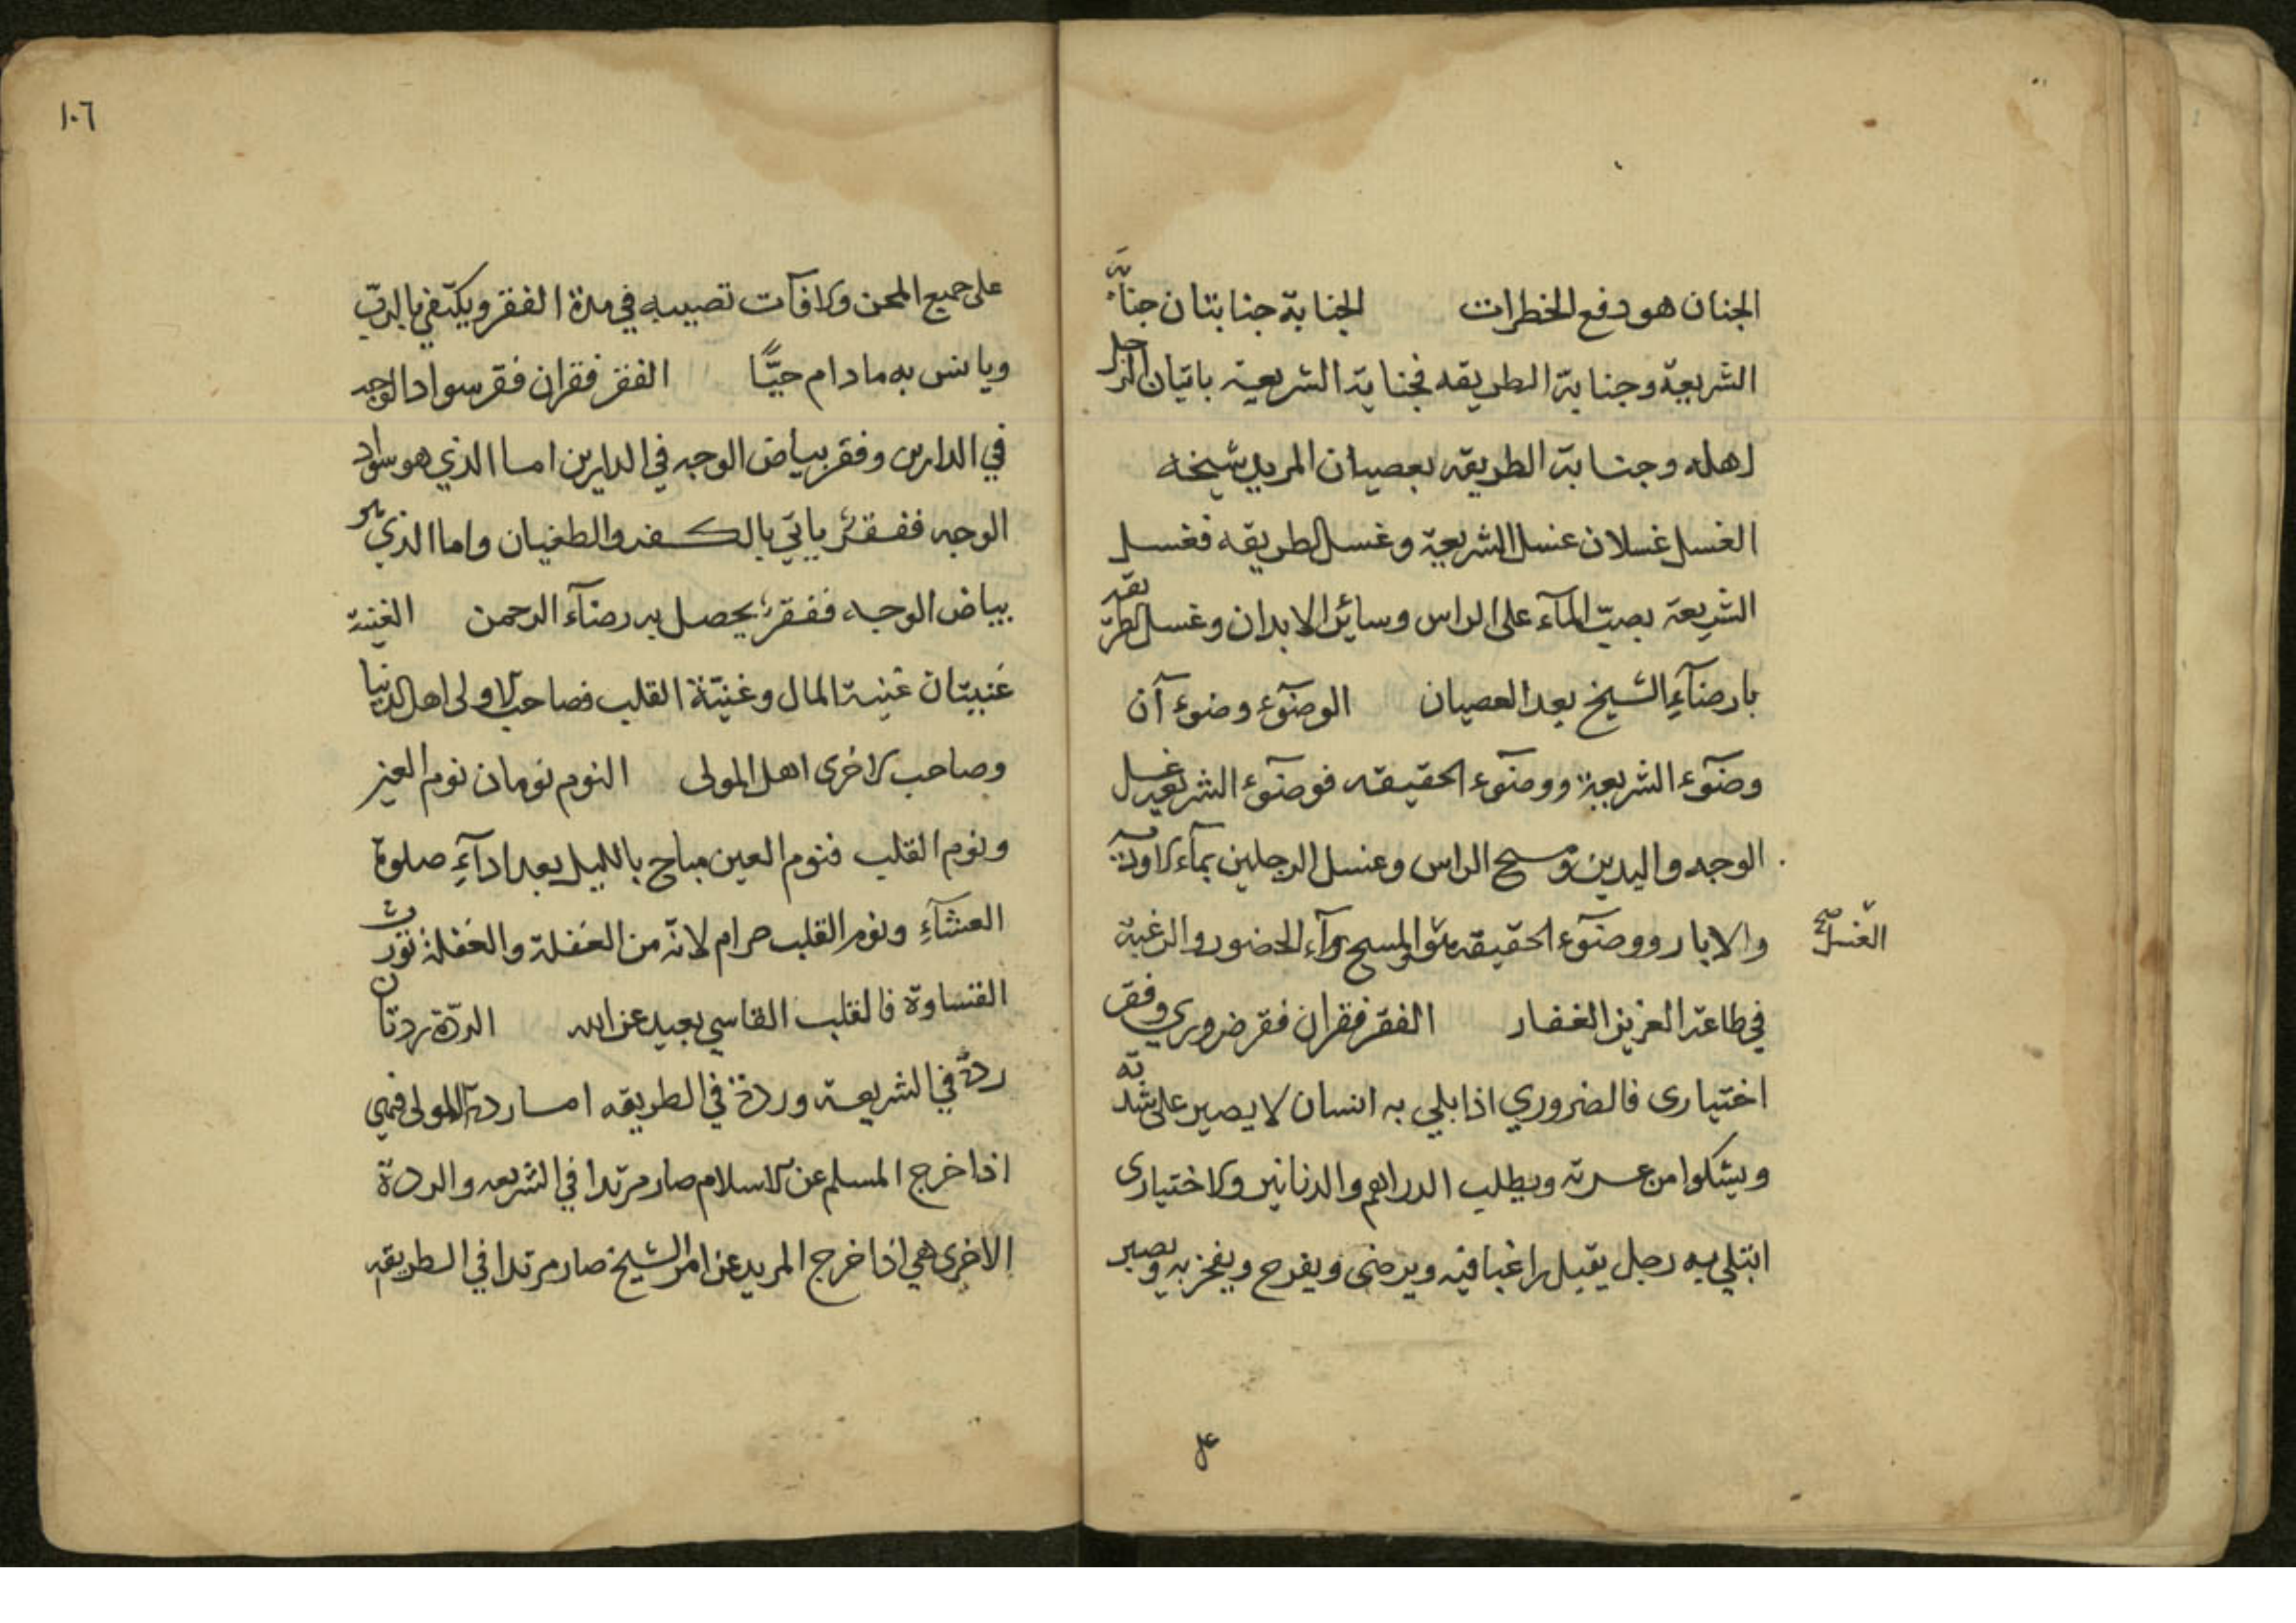 الجنان هو دفع الخطرات الجنابة جنابتان جنابة
الشريعة وجنابة الطريقه فجنابة الشريعة باتيان الرجل
اهله وجنابة الطريقه بعصيان المريد شيخه
الغسل غسلان غسل الشريعة وغسل الطريقه فغسل
الشريعة بصبّ المآء على الراس وسائر الابدان وغسل الطريقه
بارضآءِ الشيخ بعد العصيان الوضوٓء وضوءآن
وضوٓء الشريعة ووضوٓء الحقيقه فوضوٓء الشريعة غسل
الوجه واليدين ومسح الراس وغسل الرجلين بمآء الاودية
والابار ووضوٓء الحقيقه والمسح بمآء الحضور والرغبة
الغسل صح
في طاعة العزيز الغفار الفقر فقران فقر ضروري وفقر
اختيارى فالضروري اذا بلي به انسان لا يصبر على شدته
ويشكوا من عسرته ويطلب الدراهم والدنانير والاختيارى
ابتلي به رجل يقبل راغبا فيه ويرضى ويفرح ويفخر به ويصبر
على
١٠٦
على جميع المحن والافآت تصيبه في مدة الفقر ويكتفي بالربّ
ويانس به مادام حيًّا الفقر فقران فقر سواد الوجه
في الدارين وفقر بياض الوجه في الدارين اما الذي هو سواد
الوجه ففقرٌ ياتي بالكفر والطغيان واما الذي هو
بياض الوجه ففقرٌ يحصل به رضآء الرحمن الغنية
غنيتان غنية المال وغنية القلب فصاحب الاولى اهل الدنيا
وصاحب الاخرى اهل المولى النوم نومان نوم العين
ونوم القلب فنوم العين مباح بالليل بعد ادآءِ صلوة
العشآءِ ونوم القلب حرام لانّه من الغفلة والغفلة تورث
القساوة فالقلب القاسي بعيد عن الله الردّة ردتان
ردة في الشريعة وردة في الطريقه اما ردة الاولى فهي
اذا خرج المسلم عن الاسلام صار مرتدا في الشريعه والردة
الاخرى هي اذا خرج المريد عن امر الشيخ صار مرتدا في الطريقه